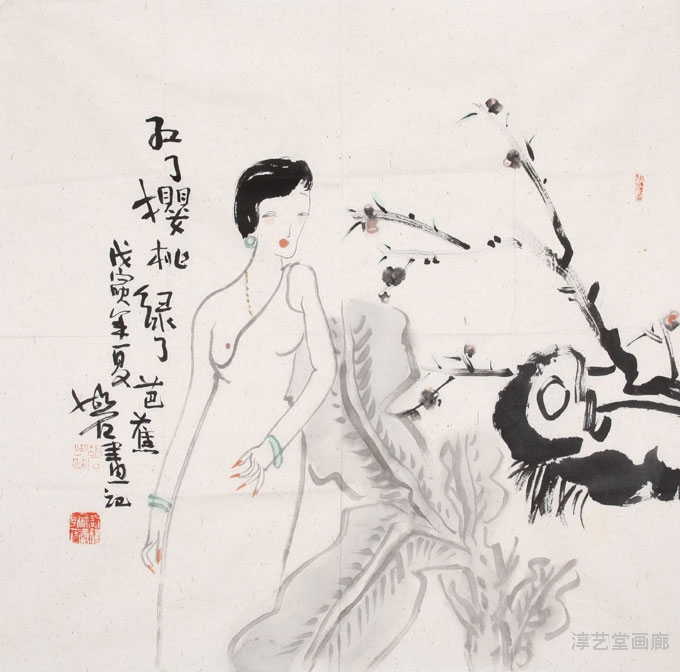 红了櫻桃绿了芭蕉
戊寅年夏
淳艺堂画廊